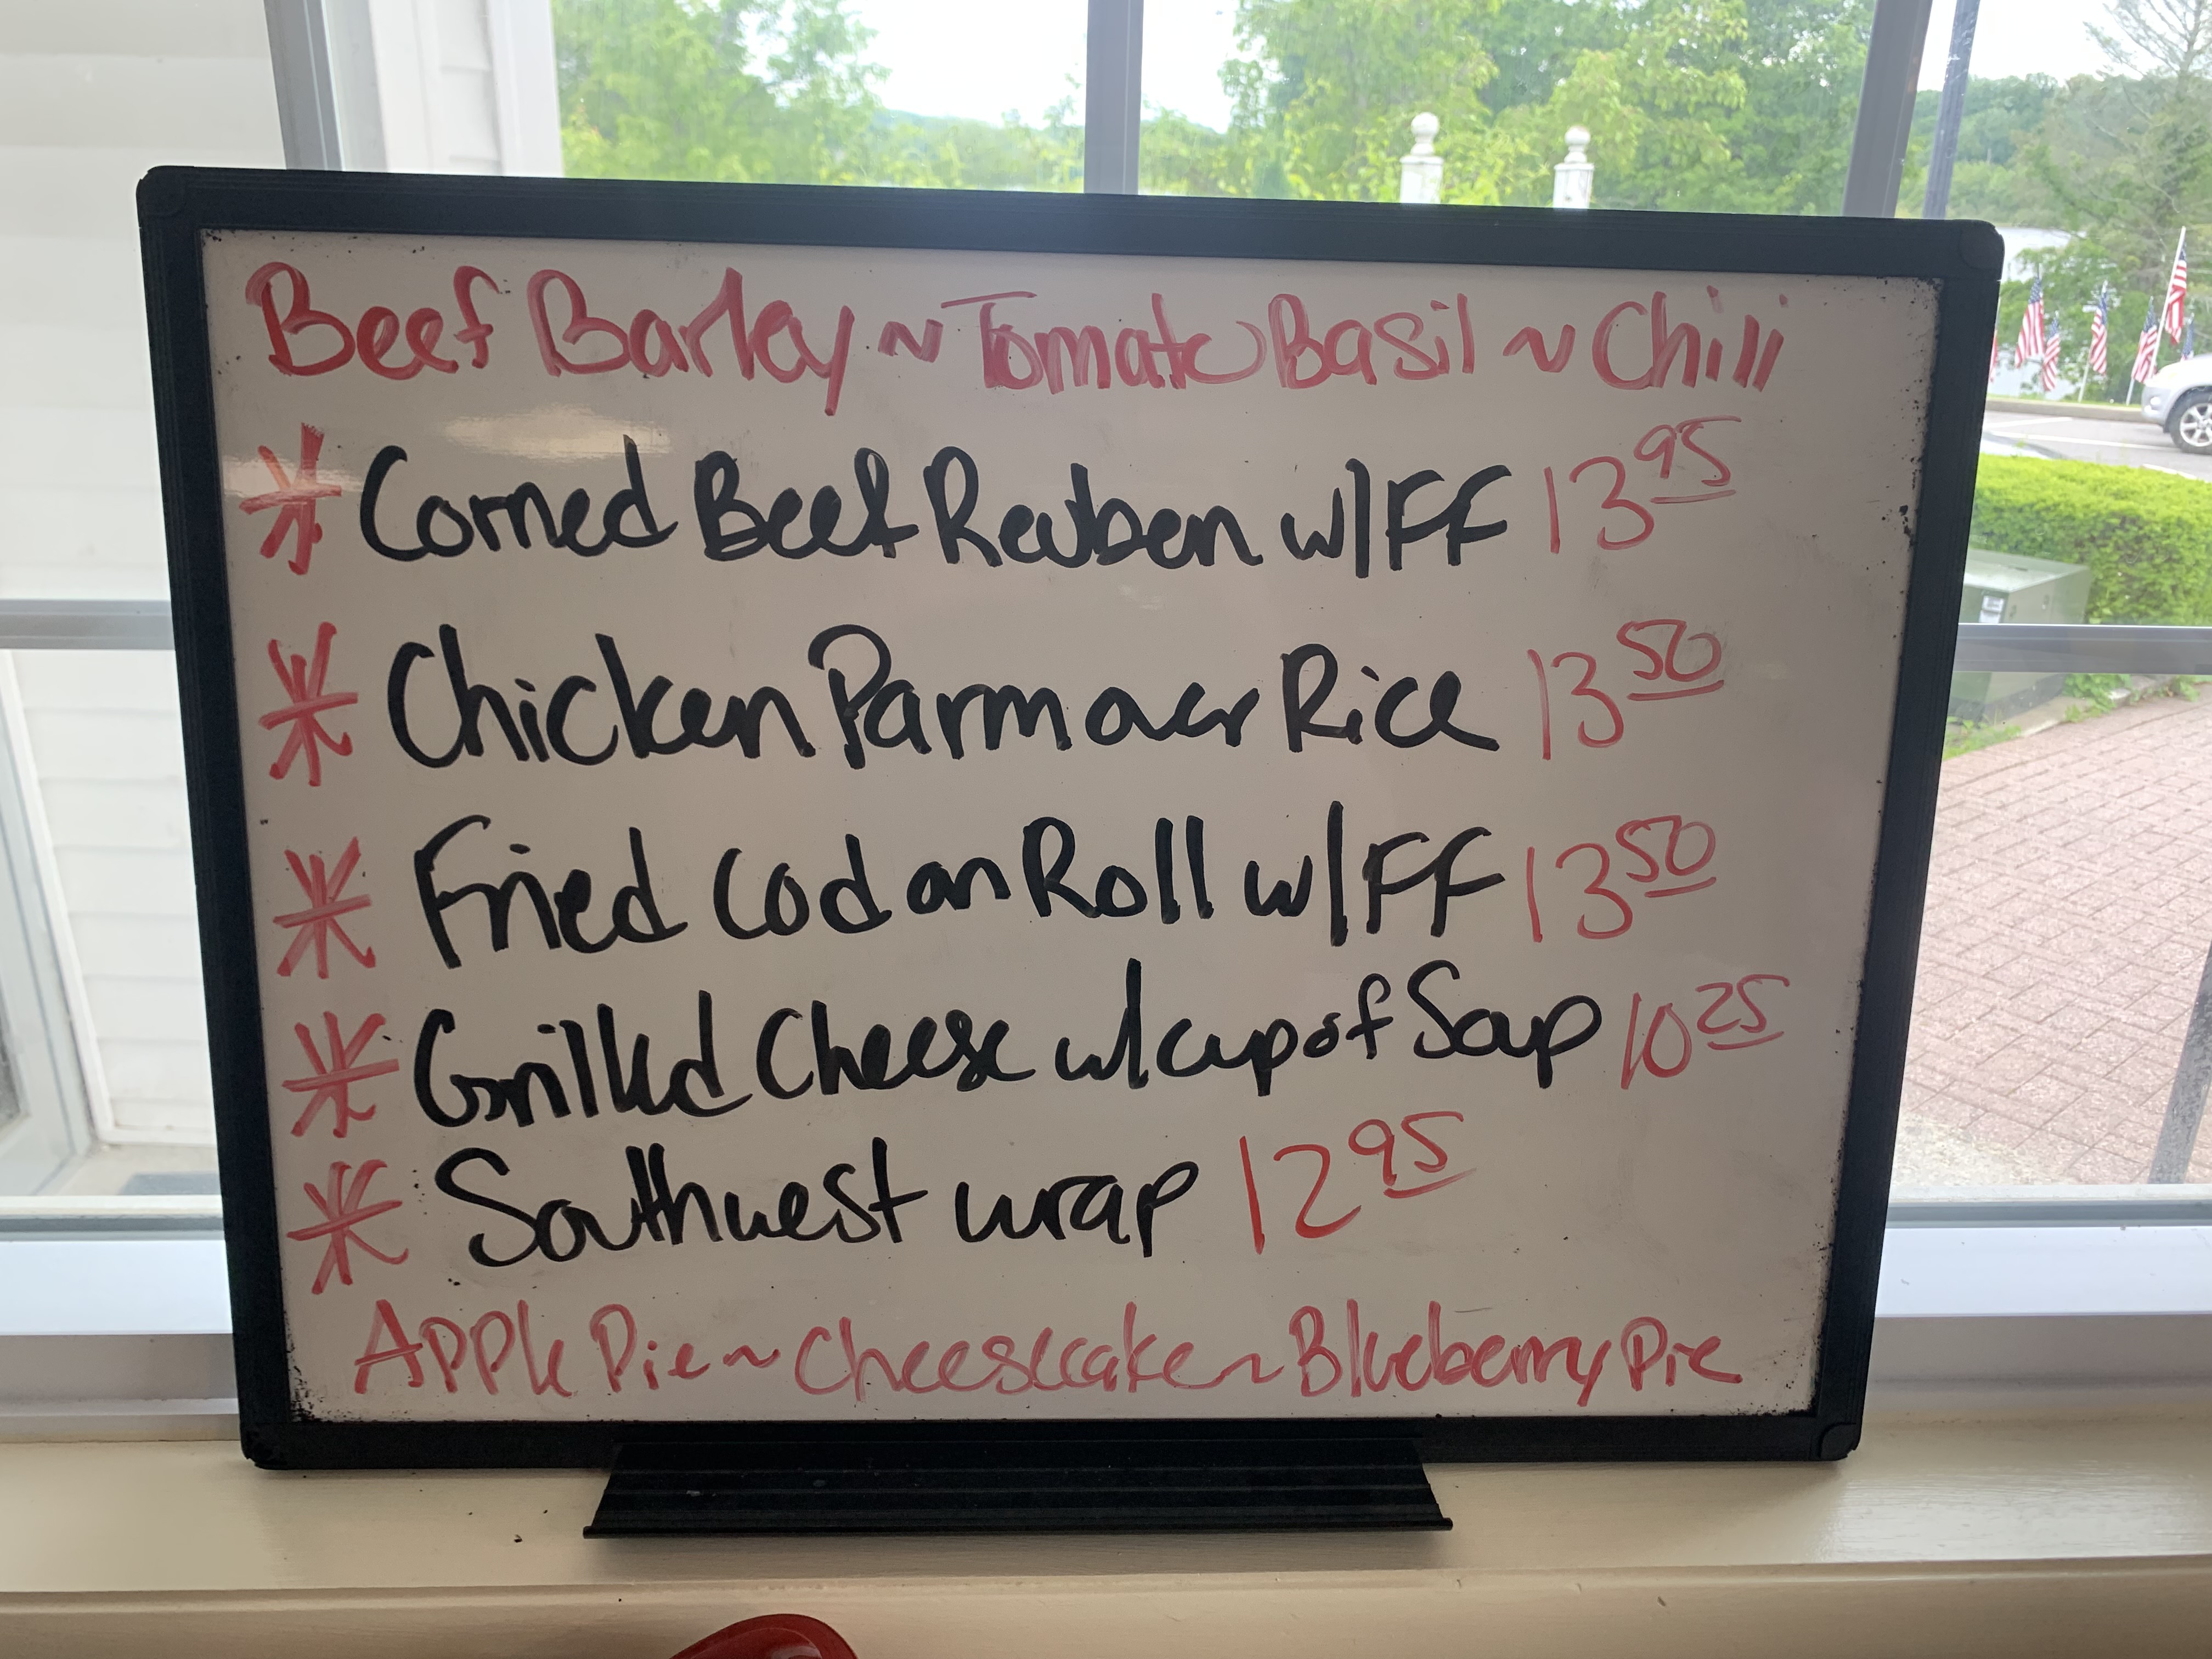 Beef Barley ~ Tomato Basil ~ Chili
* Corned Beef Reuben w/FF 13 95
* Chicken Parm over Rice 13 50
* Fried Cod on Roll w/FF 13 50
* Grilled Cheese w/cup of Soup 10 25
* Southwest wrap 12 95
Apple Pie ~ Cheesecake ~ Blueberry Pie